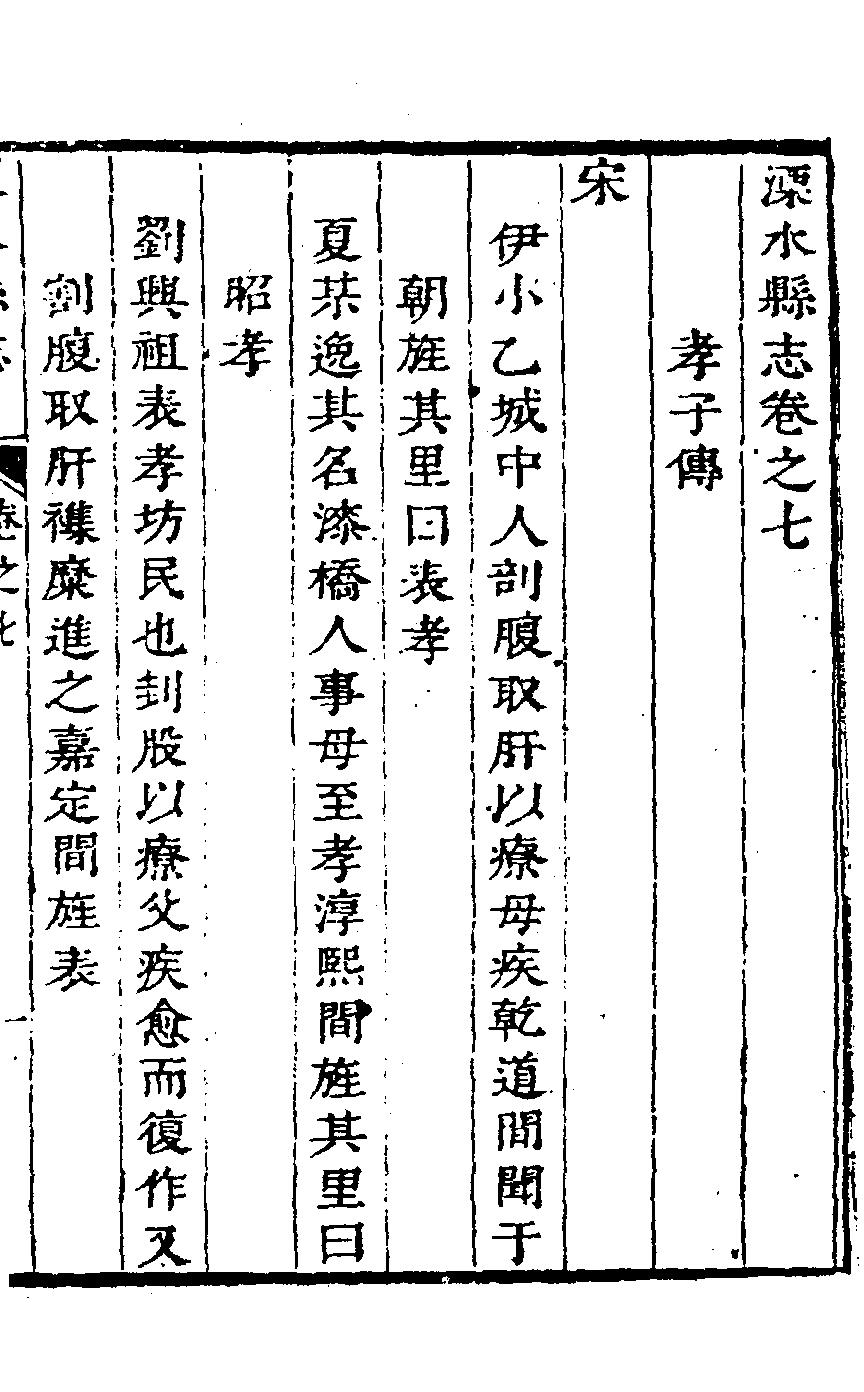 溧水縣志卷之七
孝子傳
宋
伊小乙城中人剖腹取肝以療母疾乾道間聞于
朝旌其里曰表孝
夏某逸其名漆橋人事母至孝淳熙間旌其里曰
昭孝
劉興祖表孝坊民也刲股以療父疾愈而復作又
剖腹取肝襍糜進之嘉定間旌表
卷之七